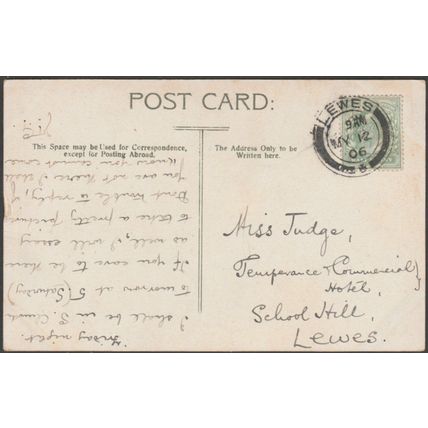 POST CARD:
This Space may be Used for Correspondence,
except for Posting Abroad.
The Address Only to be
Written here.
LEWES
9 AM
MY 12
06
Miss Judge,
Temperance & Commercial
Hotel,
School Hill,
Lewes.
Friday night.
I shall be in S. Church
to-morrow at 5 (Saturday)
If you care to be there
as well, I will essay
to take a pretty picture
Dont trouble to reply, if
you are not there I shall
know you cannot come